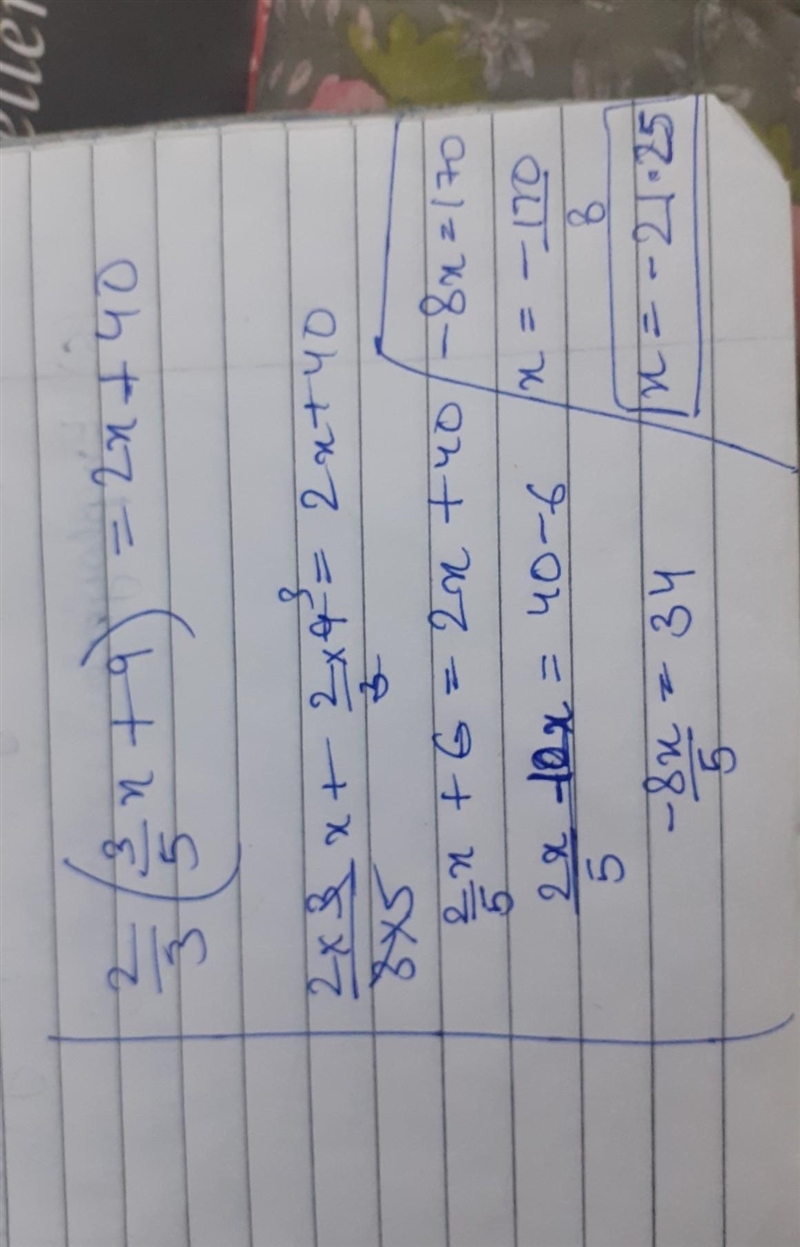 2/3 (3/5 x + 9) = 2x + 40
2×3/3×5 x + 2×9/3 = 2x + 40
2/5 x + 6 = 2x + 40
2x - 10x/5 = 40 - 6
-8x/5 = 34
-8x = 170
x = -170/8
x = -21.25